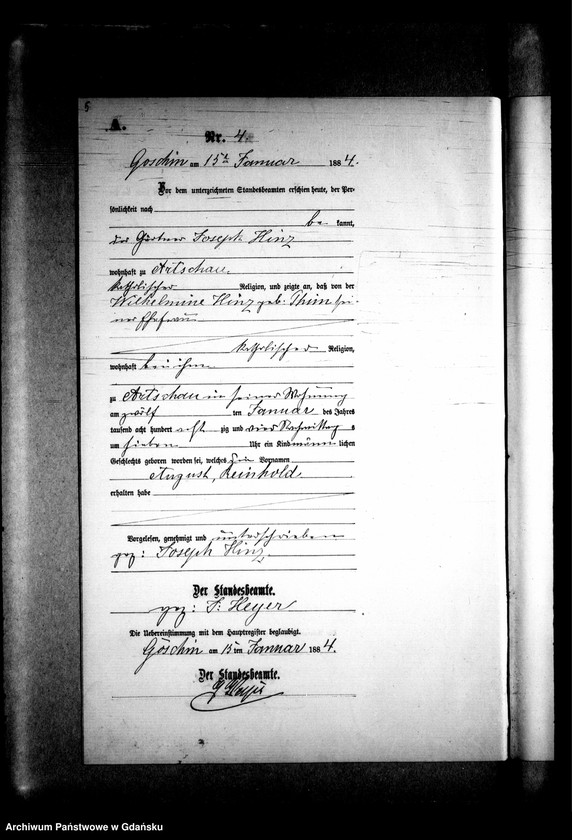 5
A.
Nr. 4.
Goschin am 15ten Januar 1884.
Vor dem unterzeichneten Standesbeamten erschien heute, der Per-
sönlichkeit nach
be kannt,
der Gärtner Joseph Hinz
wohnhaft zu Artschau,
katholischer Religion, und zeigte an, daß von der
Wilhelmine Hinz geb. Thim sei-
ner Ehefrau
katholischer Religion,
wohnhaft bei ihm
zu Artschau in seiner Wohnung
am zwölf ten Januar des Jahres
tausend acht hundert acht zig und vier Nachmittag s
um sieben Uhr ein Kind männ lichen
Geschlechts geboren worden sei, welches die Vornamen
August, Reinhold
erhalten habe
Vorgelesen, genehmigt und unterschrieben
gez: Joseph Hinz
Der Standesbeamte.
gez: Heyer
Die Uebereinstimmung mit dem Hauptregister beglaubigt.
Goschin am 15ten Januar 1884.
Der Standesbeamte.
Heyer
Archiwum Państwowe w Gdańsku